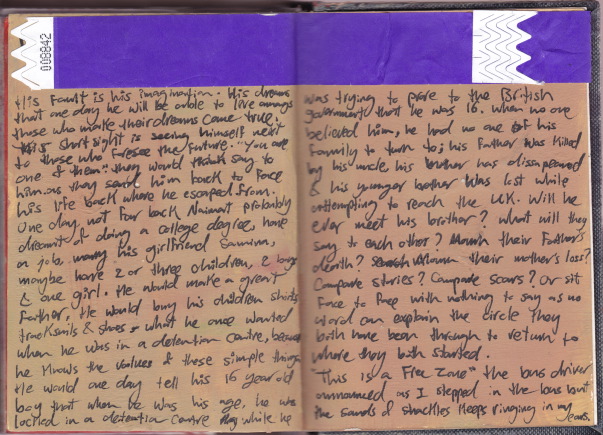 008842
His Fault is his imagination. His dreams
that one day he will be able to live amongs
those who make their dreams come true.
His short sight is seeing himself next
to those who foresee the future. "You are
one of them" they would say to
him as they send him back to face
his life back where he escaped from.
One day, not far back Naimat probably
dreamt of doing a college degree, have
a job, marry his girlfriend
maybe have 2 or three children, 2 boys
& one girl. He would make a great
Father, He would buy his children shirts
tracksuits & shoes, what he once wanted
when he was in a detention centre, because
he knows the values of these simple things
He would one day tell his 16 year old
boy that when he was his age, he was
locked in a detention centre while he
was trying to prove to the British
government that he was 16. when no one
believed him, he had no one of his
Family to turn to; his Father was killed
by his uncle, his brother has disappeared
& his younger bother was lost while
attempting to reach the UK. Will he
ever meet his brother? what will they
say to each other? Mourn their Father's
death? Mourn their mother's loss?
Compare stories? Compare scars? Or sit
Face to Face with nothing to say as no
word can explain the circle they
both have been through to return to
where they both started.
"This is a Free Zone" the bus driver
announced, as I stepped in the bus but
the sounds of shackles keeps ringing in my
ears.